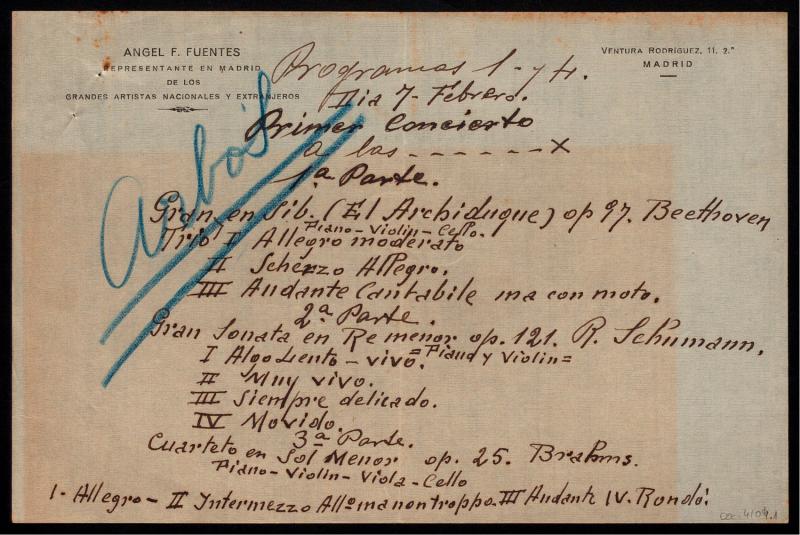 ANGEL F. FUENTES
REPRESENTANTE EN MADRID
DE LOS
GRANDES ARTISTAS NACIONALES Y EXTRANJEROS
VENTURA RODRÍGUEZ, 11, 2.º
MADRID
Arbós
Programas 1- y 4.
Dia 7- Febrero.
Primer Concierto
a las - - - - - - x
1ª Parte.
Gran en Sib. (El Archiduque) op 97. Beethoven
Piano-Violin-Cello.
Trio I Allegro moderato
II Scherzo Allegro.
III Andante Cantabile ma con moto.
2ª Parte.
Gran Sonata en Re menor op. 121. R. Schumann.
I Algo Lento - vivo. = Piano y Violin =
II Muy vivo.
III Siempre delicado.
IV Movido.
3ª Parte.
Cuarteto en Sol Menor op. 25. Brahms.
Piano-Violin-Viola-Cello
I - Allegro - II Intermezzo Allº ma non troppo III Andante IV. Rondó.